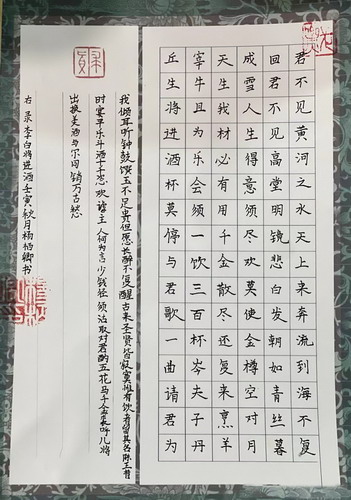 君不见黄河之水天上来奔流到海不复
回君不见高堂明镜悲白发朝如青丝暮
成雪人生得意须尽欢莫使金樽空对月
天生我材必有用千金散尽还复来烹羊
宰牛且为乐会须一饮三百杯岑夫子丹
丘生将进酒杯莫停与君歌一曲请君为
我倾耳听钟鼓馔玉不足贵但愿长醉不复醒古来圣贤皆寂寞惟有饮者留其名陈王昔
时宴平乐斗酒十千恣欢谑主人何为言少钱径须沽取对君酌五花马千金裘呼儿将
出换美酒与尔同销万古愁
右录李白将进酒壬寅秋月杨卿书